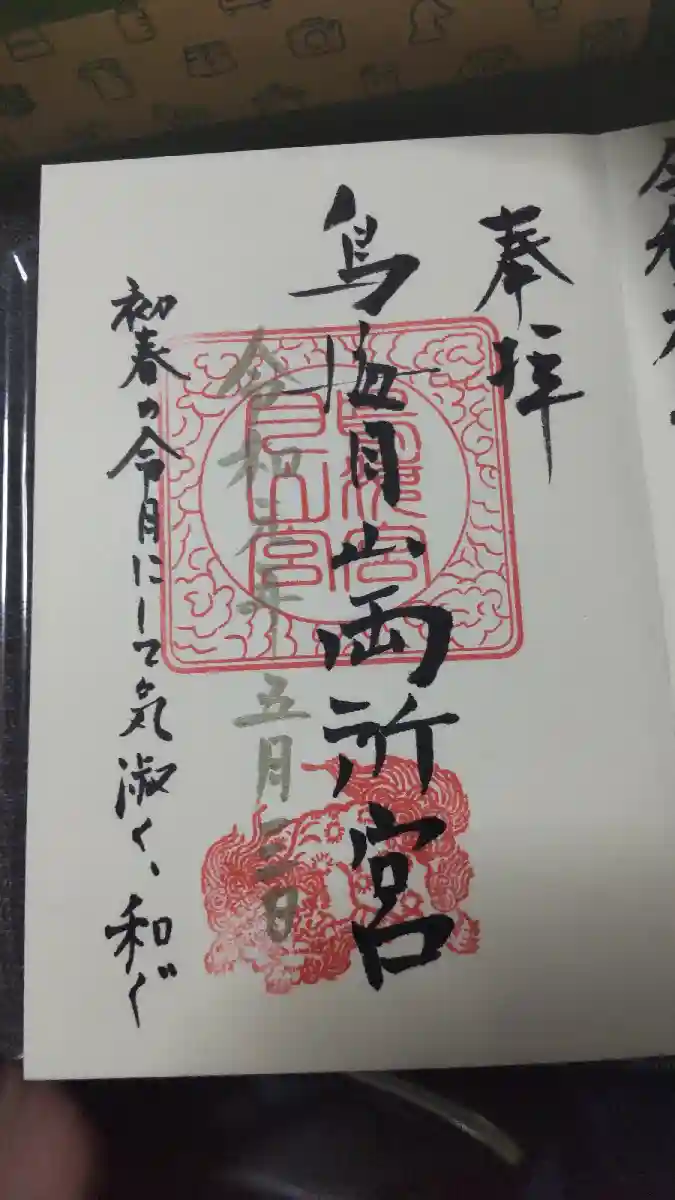 令和元
奉拝
鳥海月山両所宮
鳥海宮
月山宮
令和元年五月三日
初春の令月にして気淑く、和ぐ